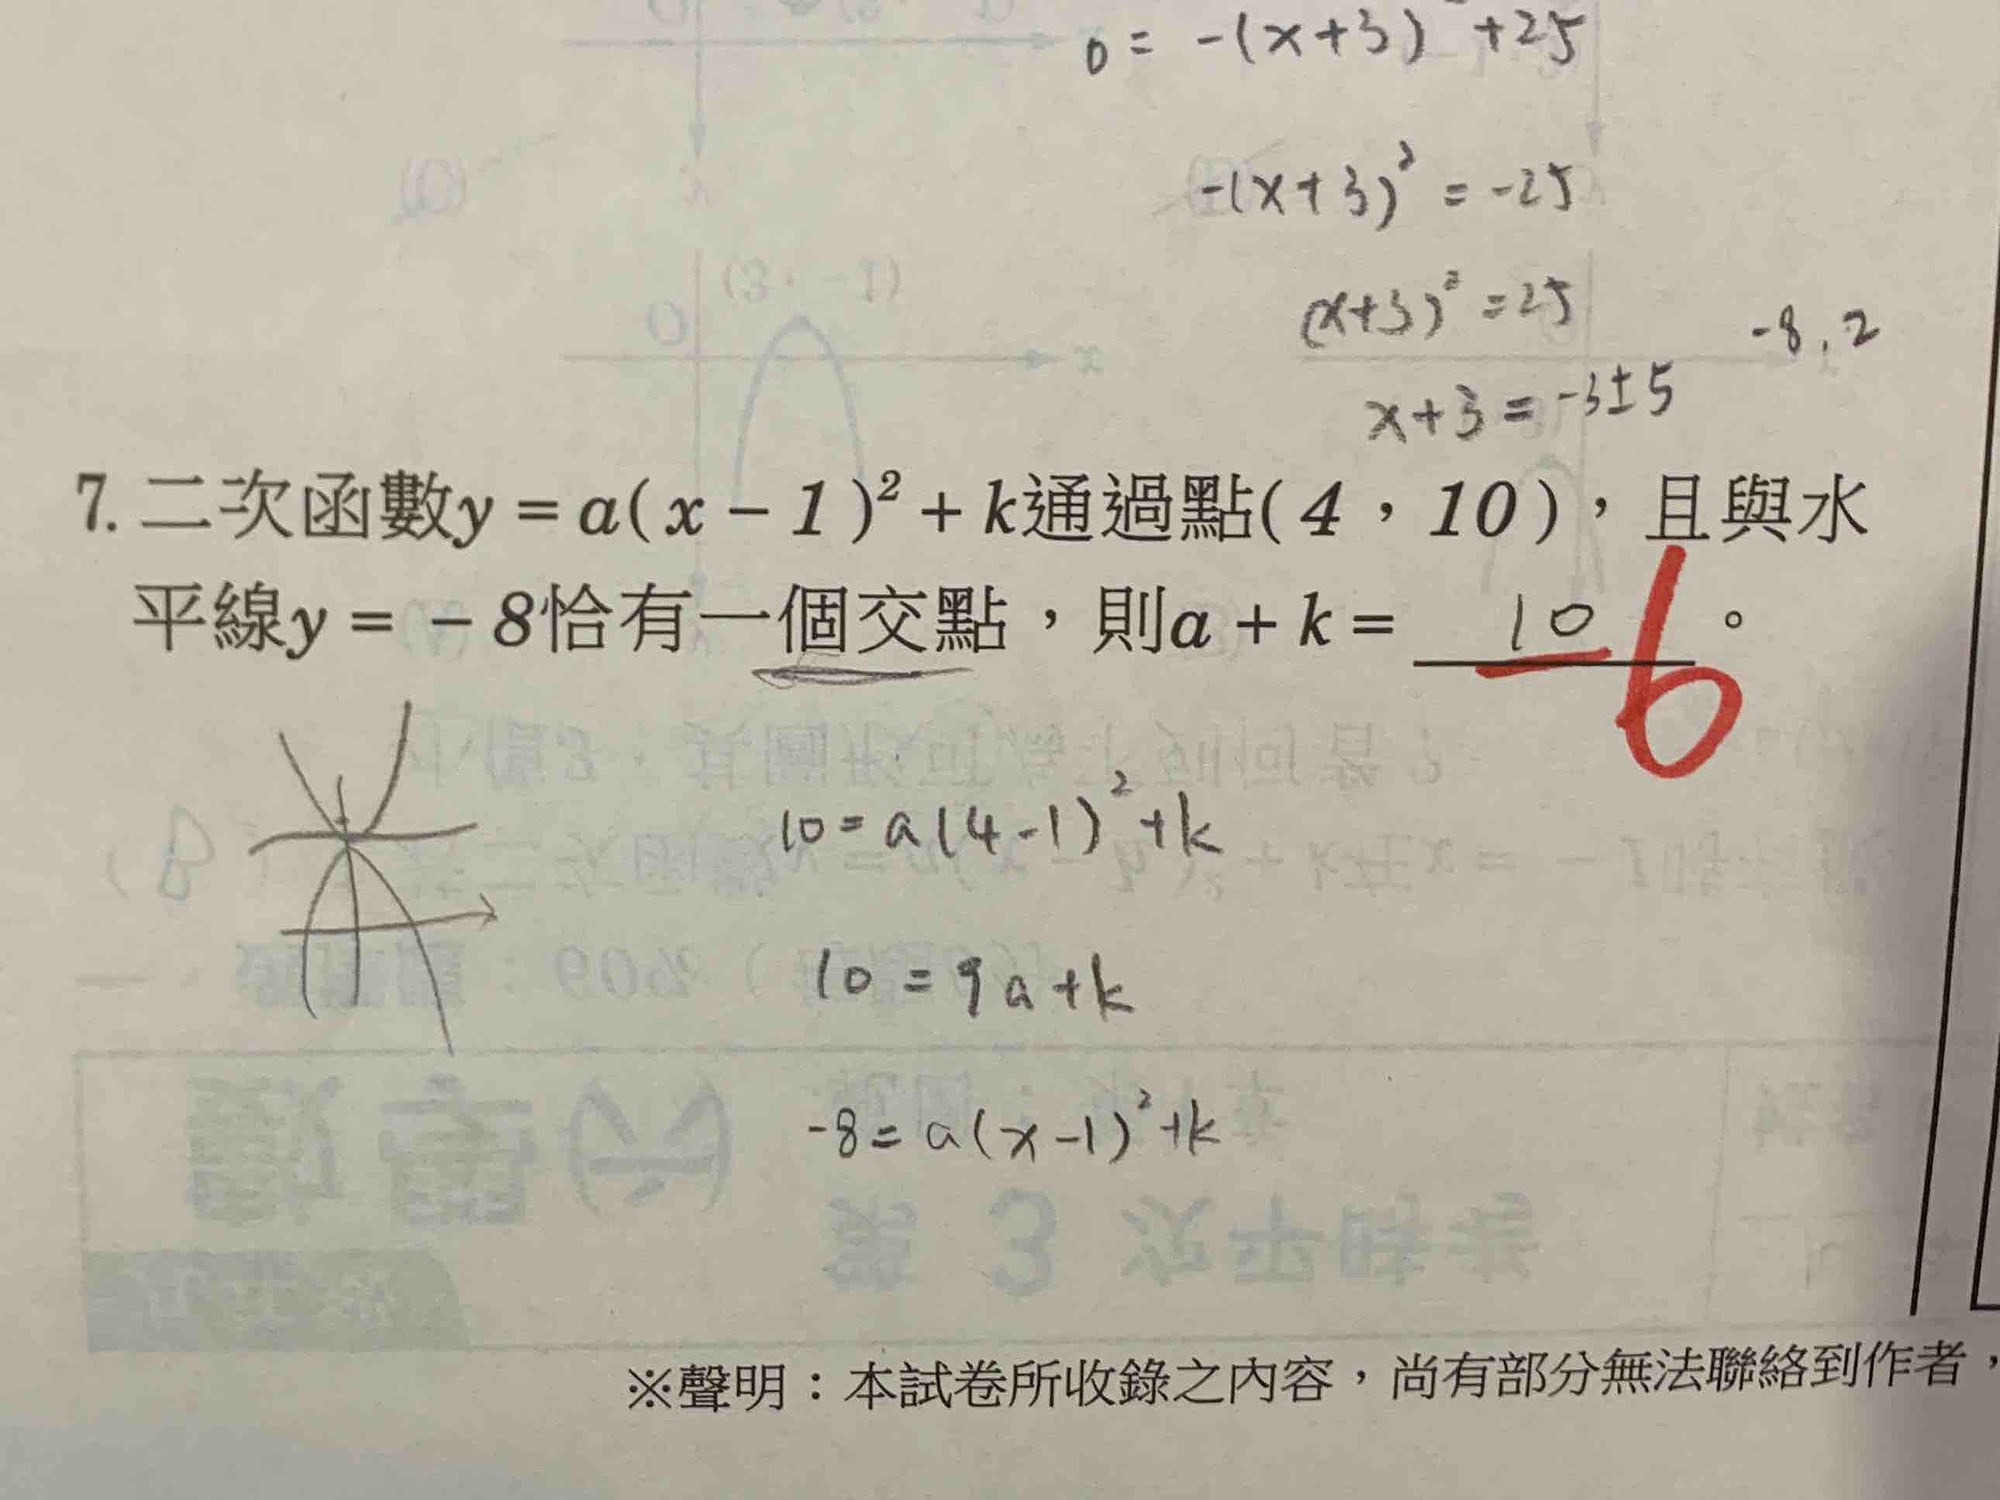 0 = -(x+3)² +25
-(x+3)² = -25
(x+3)² = 25
-8, 2
x+3 = -3±5
7. 二次函數y = a( x − 1 )² + k通過點( 4 , 10 ),且與水
平線y = − 8恰有一個交點,則a + k = 10 。
-6
10 = a(4-1)² + k
10 = 9a+k
-8 = a(x-1)² + k
※聲明:本試卷所收錄之內容,尚有部分無法聯絡到作者,